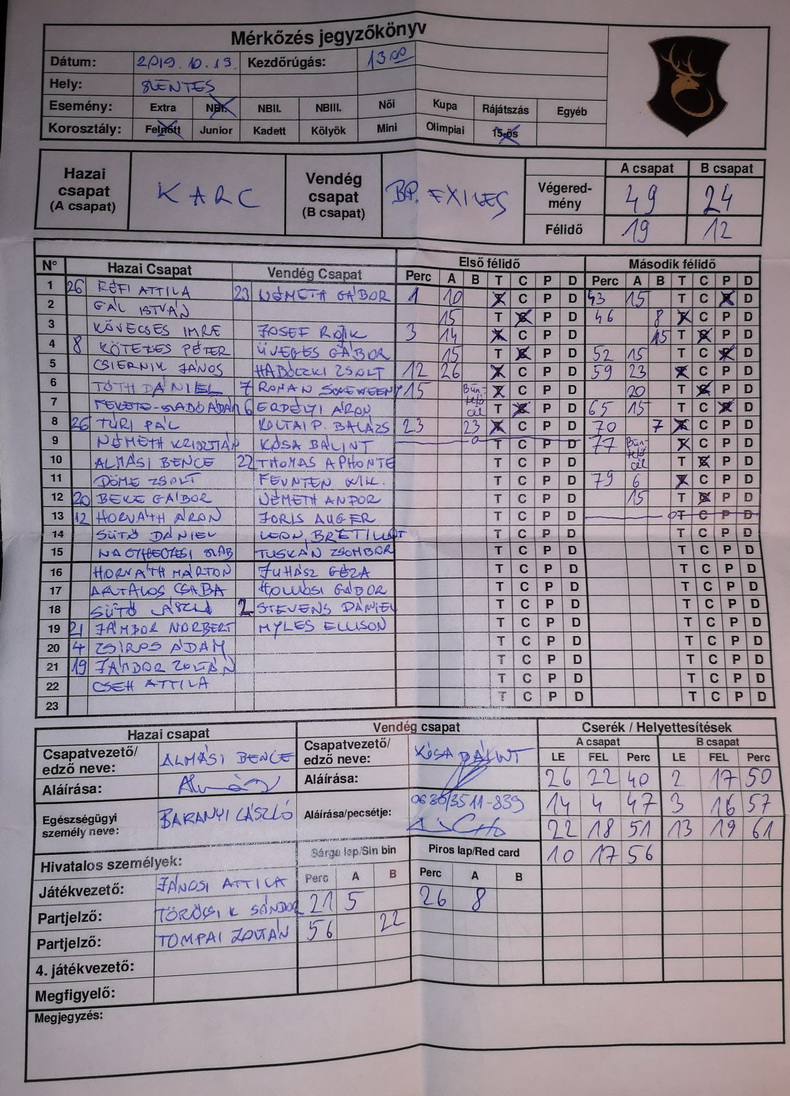 Mérkőzés jegyzőkönyv
Dátum: 2019. 10. 13. Kezdőrúgás: 13 00
Hely: SZENTES
Esemény: Extra NBI. NBII. NBIII. Női Kupa Rájátszás Egyéb
Korosztály: Felnőtt Junior Kadett Kölyök Mini Olimpiai 15-ös
Hazai csapat (A csapat) KARC Vendég csapat (B csapat) BP. EXILES
A csapat B csapat
Végeredmény 49 24
Félidő 19 12
Első félidő Második félidő
N° Hazai Csapat Vendég Csapat Perc A B T C P D Perc A B T C P D
1 26 RÉFI ATTILA 23 NÉMETH GÁBOR 1 10 T C P D 43 15 T C P D
2 GÁL ISTVÁN 15 T C P D 46 8 T C P D
3 KÖVECSES IMRE JOSEF 3 14 T C P D 15 T C P D
4 8 KÖTELES PÉTER ÜVEGES GÁBOR 15 T C P D 52 15 T C P D
5 CSIERNIK JÁNOS HABÓCZKI ZSOLT 12 26 T C P D 59 23 T C P D
6 TÓTH DÁNIEL 7 RONAN 15 Büntető cél T C P D 20 T C P D
7 6 ERDÉLYI ÁRON T C P D 65 15 T C P D
8 26 TÚRI PÁL KOLTAI P. BALÁZS 23 23 T C P D 70 7 T C P D
9 NÉMETH KRISZTIÁN KÓSA BÁLINT T C P D 77 Büntető cél T C P D
10 ALMÁSI BENCE 22 THOMAS APHONTE T C P D T C P D
11 DÖME ZSOLT T C P D 79 6 T C P D
12 20 BEKE GÁBOR NÉMETH ANDOR T C P D 15 T C P D
13 12 HORVÁTH ÁRON JORIS AUGER T C P D T C P D
14 SÜTŐ DÁNIEL LEON, T C P D T C P D
15 TUSKÁN ZSOMBOR T C P D T C P D
16 HORVÁTH MÁRTON JUHÁSZ GÉZA T C P D T C P D
17 ANTALOS CSABA GÁBOR T C P D T C P D
18 SÜTŐ LÁSZLÓ 2 STEVENS DÁNIEL T C P D T C P D
19 21 JÁMBOR NORBERT MYLES ELLISON T C P D T C P D
20 4 ZSÍROS ÁDÁM T C P D T C P D
21 19 ZOLTÁN T C P D T C P D
22 CSEH ATTILA T C P D T C P D
23 T C P D T C P D
Hazai csapat Vendég csapat Cserék / Helyettesítések
A csapat B csapat
Csapatvezető/edző neve: ALMÁSI BENCE Csapatvezető/edző neve: KÓSA BÁLINT LE FEL Perc LE FEL Perc
Aláírása: Aláírása: 26 22 40 2 17 50
Egészségügyi személy neve: BARANYI LÁSZLÓ Aláírása/pecsétje: 0630/3511-839 14 4 47 3 16 57
22 18 51 13 19 61
Hivatalos személyek: Sárga lap/Sin bin Piros lap/Red card 10 17 56
Perc A B Perc A B
Játékvezető: JÁNOSI ATTILA 21 5 26 8
Partjelző: TÖRÖCSIK SÁNDOR 56 22
Partjelző: TOMPAI ZOLTÁN
4. játékvezető:
Megfigyelő:
Megjegyzés: